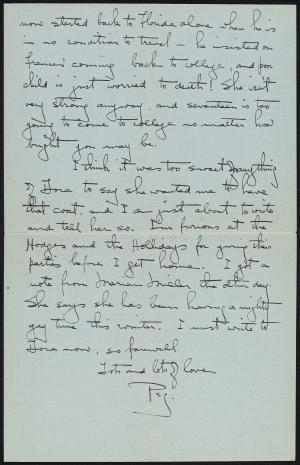 now started back to Florida alone when he is
in no condition to travel - he insisted on
Frances' coming back to college, and poor
child is just worried to death! She isn't
very strong anyway, and seventeen is too
young to come to college no matter how
bright you may be.
I think it was too sweet for anything
of Dora to say she wanted me to have
that coat, and I am just about to write
and tell her so. I'm furious at the
Hodges and the Hollidays for giving their
parties before I get home. I got a
note from Marian Muller the other day.
She says she has been having a mighty
gay time this winter. I must write to
Dora now, so farewell
Lots and lots of love
Peg.